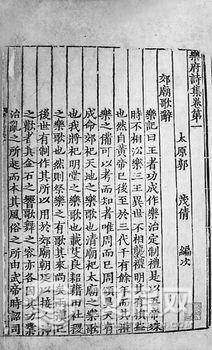 樂府詩集卷第一
太原郭 茂倩 編次
郊廟歌辭
樂記曰王者功成作樂治定制禮是以五帝殊
時不相沿樂三王異世不相襲禮明其有損益
也然自黃帝已後至於三代千有餘年而其禮
樂之備可以考而知者唯周而已周頌昊天有
成命郊祀天地之樂歌也清廟祀太廟之樂歌
也我將祀明堂之樂歌也載芟良耜藉田社稷
之樂歌也然則祭樂之有歌其來尚矣兩漢已
後世有制作其所以用於郊廟朝廷以接人神
之歡者其金石之響歌舞之容亦各因其功業
治亂之所起而本其風俗之所由武帝時詔司